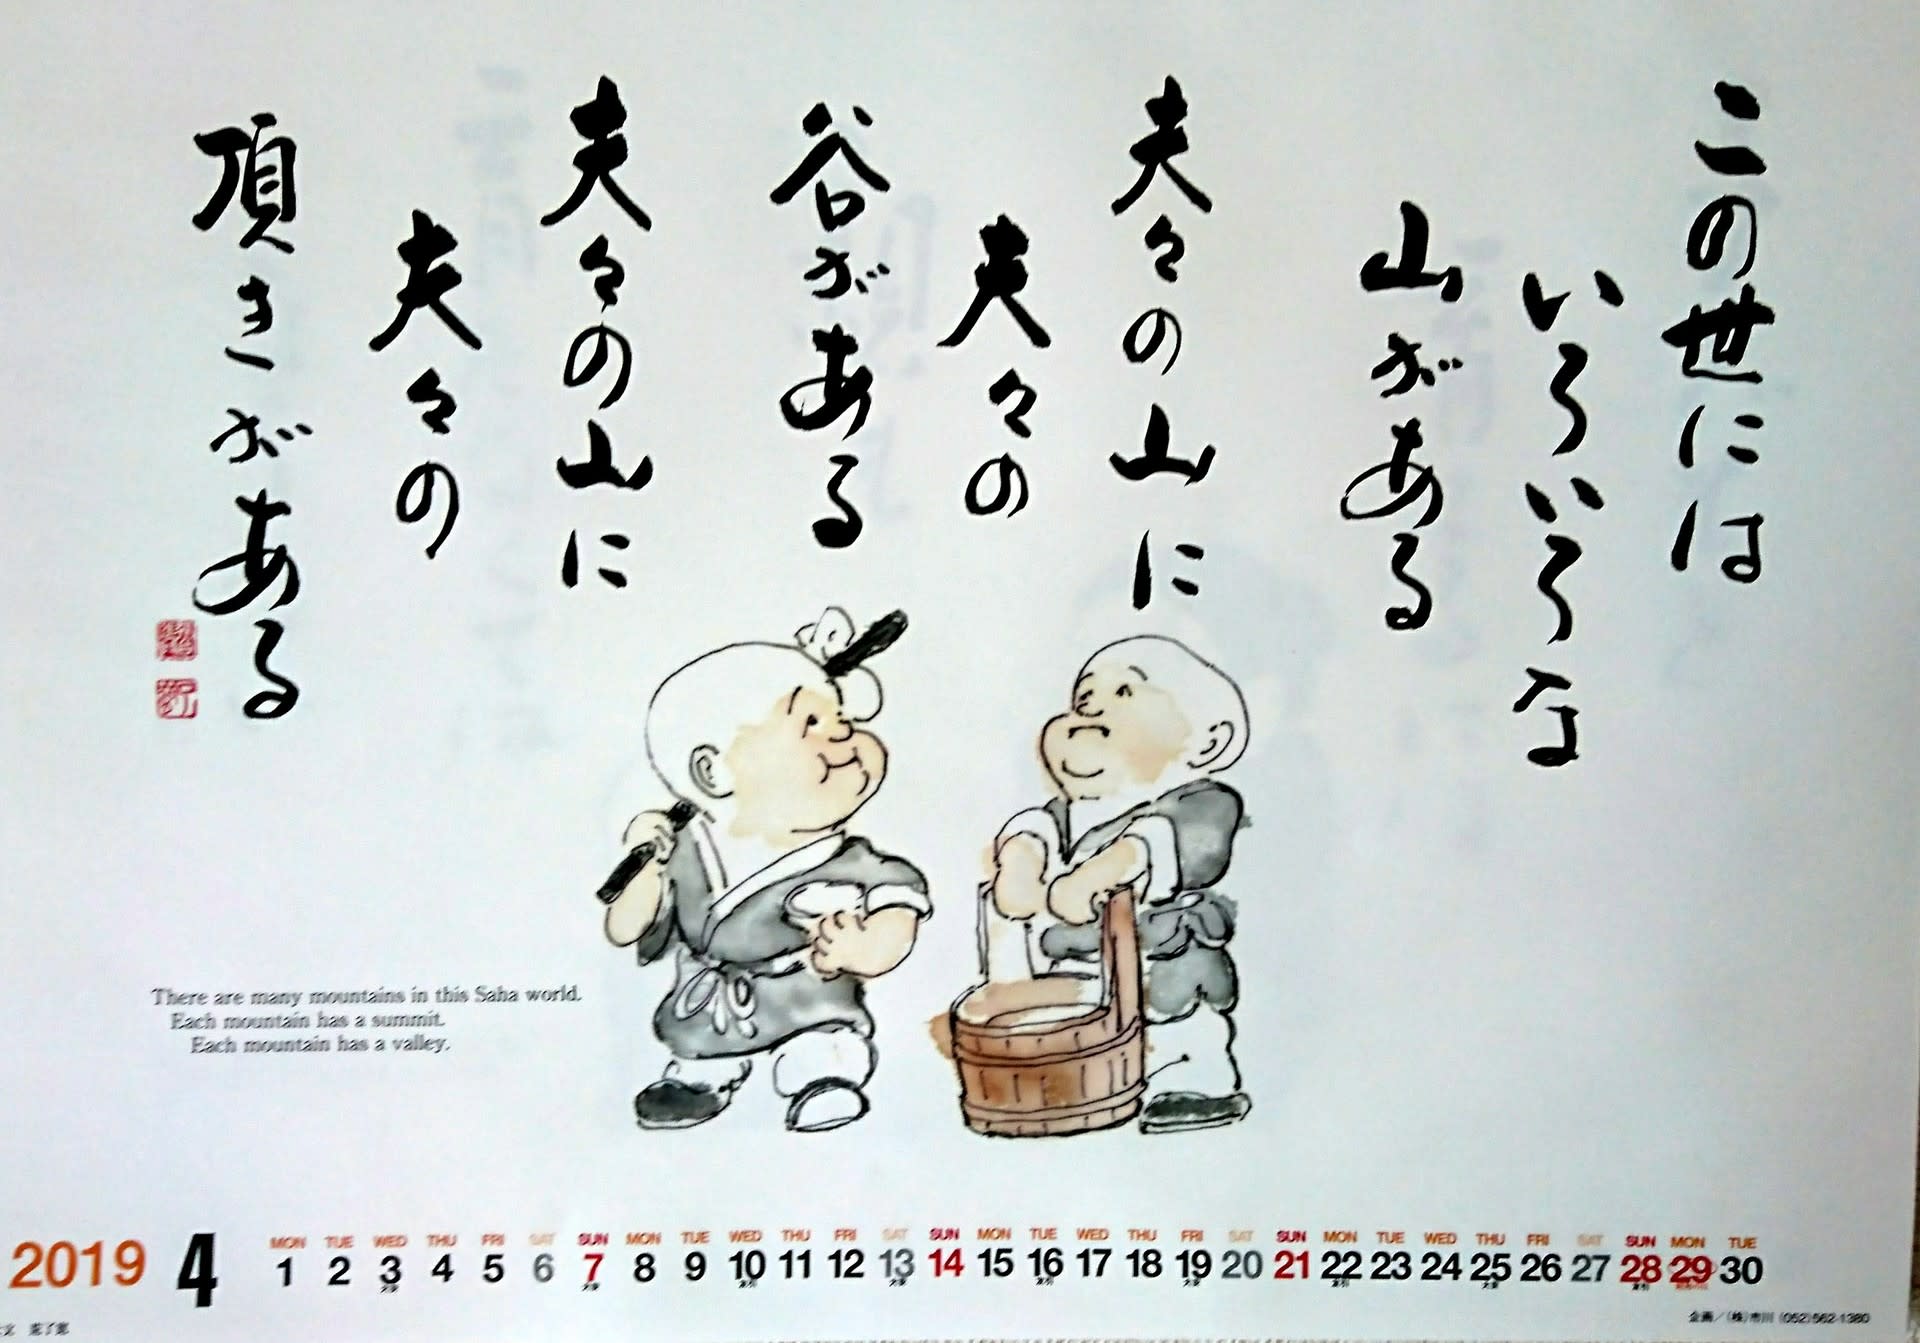 この世には
いろいろな
山がある
夫々の山に
夫々の
谷がある
夫々の山に
夫々の
頂きがある
There are many mountains in this Saha world.
Each mountain has a summit.
Each mountain has a valley.
2019 4
MON TUE WED THU FRI SAT SUN MON TUE WED THU FRI SAT SUN MON TUE WED THU FRI SAT SUN MON TUE WED THU FRI SAT SUN MON TUE
1 2 3 4 5 6 7 8 9 10 11 12 13 14 15 16 17 18 19 20 21 22 23 24 25 26 27 28 29 30
企画/(株)市川 (052)562-1380